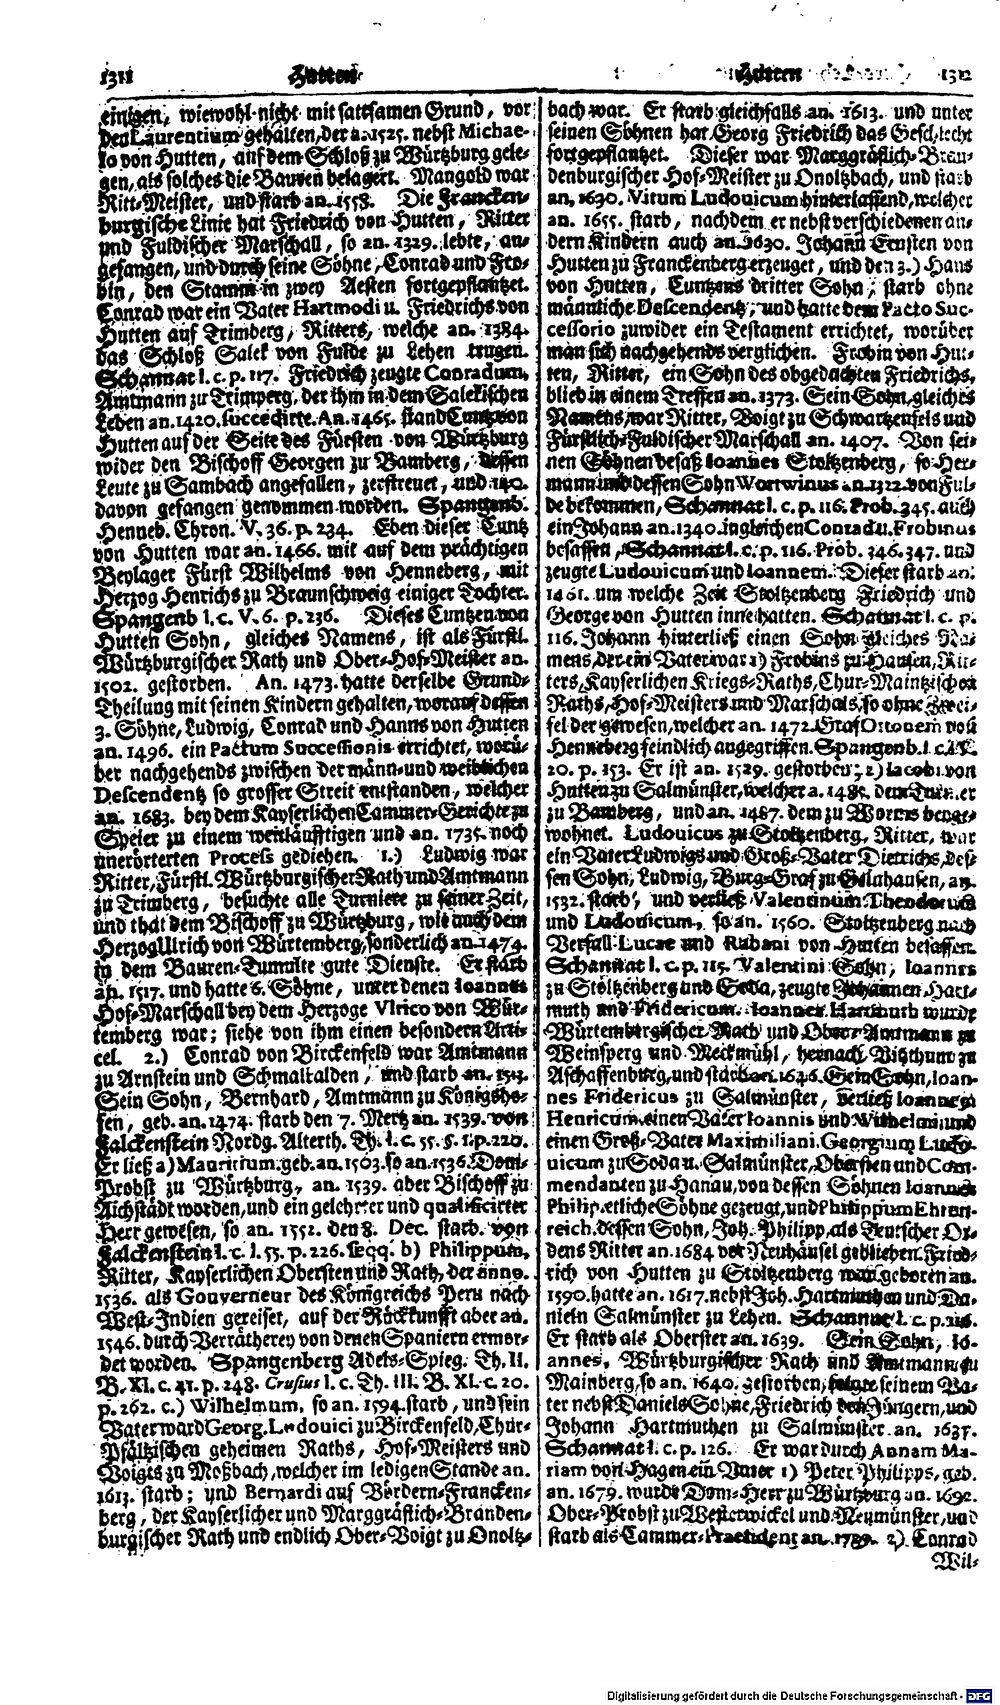 1311 Hutten Hutten 1312
einigen, wiewohl nicht mit sattsamen Grund, vor
den Laurentium gehalten, der a. 1525. nebst Michae-
lo von Hutten, auf dem Schloß zu Würtzburg gele-
gen, als solches die Bauren belagert. Mangold war
Ritt-Meister, und starb an. 1558. Die Francken-
burgische Linie hat Friedrich von Hutten, Ritter
und Fuldischer Marschall, so an. 1329. lebte, an-
gefangen, und durch seine Söhne, Conrad und Fro-
bin, den Stamm in zwey Aesten fortgepflantzet.
Conrad war ein Vater Hartmodi u. Friedrichs von
Hutten auf Trimberg, Ritters, welche an. 1384.
das Schloß Salek von Fulde zu Lehen trugen.
Schannat l. c. p. 117. Friedrich zeugte Conradum,
Amtmann zu Trimperg, der ihm in dem Salekischen
Leben an. 1420. succedirte. An. 1465. stand Cuntz von
Hutten auf der Seite des Fürsten von Würtzburg
wider den Bischoff Georgen zu Bamberg, dessen
Leute zu Sambach angefallen, zerstreuet, und 140.
davon gefangen genommen worden. Spangenb.
Henneb. Chron. V. 36. p. 234. Eben dieser Cuntz
von Hutten war an. 1466. mit auf dem prächtigen
Beylager Fürst Wilhelms von Henneberg, mit
Herzog Henrichs zu Braunschweig einiger Tochter.
Spangenb l. c. V. 6. p. 236. Dieses Cuntzen von
Hutten Sohn, gleiches Namens, ist als Fürstl.
Würtzburgischer Rath und Ober-Hof-Meister an.
1502. gestorben. An. 1473. hatte derselbe Grund-
Theilung mit seinen Kindern gehalten, worauf dessen
3. Söhne, Ludwig, Conrad und Hanns von Hutten
an. 1496. ein Pactum Successionis errichtet, worü-
ber nachgehends zwischen der männ- und weiblichen
Descendentz so grosser Streit entstanden, welcher
an. 1683. bey dem Kayserlichen Cammer-Gerichte zu
Speier zu einem weitläufftigen und an. 1735. noch
unerörterten Process gediehen. 1.) Ludwig war
Ritter, Fürstl. Würtzburgischer Rath und Amtmann
zu Trimberg, besuchte alle Turniere zu seiner Zeit,
und that dem Bischoff zu Würtzburg, wie auch dem
Herzog Ulrich von Würtemberg, sonderlich an. 1474.
in dem Bauren-Tumulte gute Dienste. Er starb
an. 1517. und hatte 6. Söhne, unter denen Ioannes
Hof-Marschall bey dem Herzoge Vlrico von Wür-
temberg war; siehe von ihm einen besondern Arti-
cel. 2.) Conrad von Birckenfeld war Amtmann
zu Arnstein und Schmalkalden, und starb an. 1513.
Sein Sohn, Bernhard, Amtmann zu Königsho-
fen, geb. an. 1474. starb den 7. Mertz an. 1539. von
Falckenstein Nordg. Alterth. Th. l. c. 55. §. 1. p. 220.
Er ließ a) Mauritium. geb. an. 1503. so an. 1536. Dom-
Probst zu Würtzburg, an. 1539. aber Bischoff zu
Aichstädt worden, und ein gelehrter und qualificirter
Herr gewesen, so an. 1552. den 8. Dec. starb. von
Falckenstein l. c. l. 55. p. 226. seqq. b) Philippum,
Ritter, Kayserlichen Obersten und Rath, der anno.
1536. als Gouverneur des Königreichs Peru nach
West-Indien gereiset, auf der Rückkunfft aber an.
1546. durch Verrätherey von denen Spaniern ermor-
det worden. Spangenberg Adels-Spieg. Th. II.
B. XI. c. 41. p. 248. Crusius l. c. Th. III. B. XI. c. 20.
p. 262. c.) Wilhelmum, so an. 1594. starb, und sein
Vater ward Georg. Ludouici zu Birckenfeld, Chur-
Pfältzischen geheimen Raths, Hof-Meisters und
Voigts zu Moßbach, welcher im ledigen Stande an.
1613. starb; und Bernardi auf Vördern-Francken-
berg, der Kayserlicher und Marggräflich-Branden-
burgischer Rath und endlich Ober-Voigt zu Onoltz-
bach war. Er starb gleichfalls an. 1613. und unter
seinen Söhnen hat Georg Friedrich das Geschlecht
fortgepflantzet. Dieser war Marggräflich-Bran-
denburgischer Hof-Meister zu Onoltzbach, und starb
an. 1630. Vitum Ludouicum hinterlassend, welcher
an. 1655. starb, nachdem er nebst verschiedenen an-
dern Kindern auch an. 1630. Johann Ernsten von
Hutten zu Franckenberg erzeuget, und den 3.) Hans
von Hutten, Cuntzens dritter Sohn, starb ohne
männliche Descendentz, und hatte dem Pacto Suc-
cessorio zuwider ein Testament errichtet, worüber
man sich nachgehends verglichen. Frobin von Hut-
ten, Ritter, ein Sohn des obgedachten Friedrichs,
blieb in einem Treffen an. 1373. Sein Sohn, gleiches
Namens, war Ritter, Voigt zu Schwartzenfels und
Fürstlich-Fuldischer Marschall an. 1407. Von sei-
nen Söhnen besaß Ioannes Stoltzenberg, so Her-
mann und dessen Sohn Wortwinus an. 1322. von Ful-
de bekommen, Schannat l. c. p. 116. Prob. 345. auch
ein Johann an. 1340. ingleichen Conrad u. Frobinus
besassen, Schannat l. c. p. 116. Prob. 346. 347. und
zeugte Ludouicum und Ioannem. Dieser starb an.
1461. um welche Zeit Stoltzenberg Friedrich und
George von Hutten inne hatten. Schannat l. c. p.
116. Johann hinterließ einen Sohn gleiches Na-
mens, der ein Vater war 1) Frobins zu Hausen, Rit-
ters, Kayserlichen Kriegs-Raths, Chur-Maintzischen
Raths, Hof-Meisters und Marschals, so ohne Zwei-
fel der gewesen, welcher an. 1472. Graf Ottonem von
Henneberg feindlich angegriffen. Spangenb. l. c. V.
20. p. 153. Er ist an. 1529. gestorben; 2) Iacobi von
Hutten zu Salmünster, welcher a. 1485. dem Turnier
zu Bamberg, und an. 1487. dem zu Worms beyge-
wohnet. Ludouicus zu Stoltzenberg, Ritter, war
ein Vater Ludwigs und Groß-Vater Dietrichs, des-
sen Sohn, Ludwig, Burg-Graf zu Gelnhausen, an.
1532. starb, und verließ Valentinum Theodorum
und Ludouicum, so an. 1560. Stoltzenberg nach
Verfall Lucae und Rabani von Hutten besassen.
Schannat l. c. p. 115. Valentini Sohn, Ioannes
zu Stoltzenberg und Soda, zeugte Johannen Hart-
muth und Fridericum. Ioannes Hartmuth wurde
Würtembergischer Rath und Ober-Amtmann zu
Weinsperg und Meckmühl, hernach Vitzthum zu
Aschaffenburg, und starb an. 1646. Sein Sohn, Ioan-
nes Fridericus zu Salmünster, verließ Ioannem
Henricum, einen Vater Ioannis und Wilhelmi und
einen Groß-Vater Maximiliani. Georgium Ludo-
uicum zu Soda u. Salmünster, Obersten und Com-
mendanten zu Hanau, von dessen Söhnen Ioannes
Philip. etliche Söhne gezeugt, und Philippum Ehren-
reich. dessen Sohn, Joh. Philipp, als Teutscher Or-
dens Ritter an. 1684 vor Neuhäusel geblieben. Fried-
rich von Hutten zu Stoltzenberg war geboren an.
1590. hatte an. 1617. nebst Joh. Hartmuthen und Da-
nieln Salmünster zu Lehen. Schannat l. c. p.
Er starb als Oberster an. 1639. Sein Sohn, Io-
annes, Würtzburgischer Rath und Amtmann zu
Mainberg, so an. 1640. gestorben, folgte seinem Va-
ter nebst Daniels Sohne, Friedrich den Jüngern, und
Johann Hartmuthen zu Salmünster an. 1637.
Schannat l. c. p. 126. Er war durch Annam Ma-
riam von Hagen ein Vater 1) Peter Philipps, geb.
an. 1679. wurde Dom-Herr zu Würtzburg an. 1692.
Ober-Probst zu Westerwickel und Neumünster, und
starb als Cammer-Praesident an. 2) Conrad
Wil-
Digitalisierung gefördert durch die Deutsche Forschungsgemeinschaft - DFG